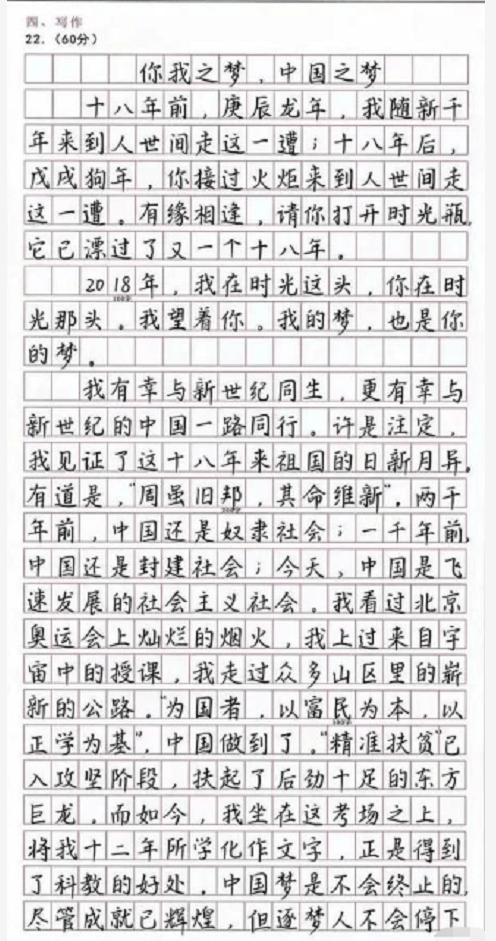 四、写作
22.（60分）
你我之梦，中国之梦
十八年前，庚辰龙年，我随新千
年来到人世间走这一遭；十八年后，
戊戌狗年，你接过火炬来到人世间走
这一遭。有缘相逢，请你打开时光瓶，
它已漂过了又一个十八年。
2018年，我在时光这头，你在时
光那头。我望着你。我的梦，也是你
的梦。
我有幸与新世纪同生，更有幸与
新世纪的中国一路同行。许是注定，
我见证了这十八年来祖国的日新月异。
有道是，"周虽旧邦，其命维新"，两千
年前，中国还是奴隶社会；一千年前，
中国还是封建社会；今天，中国是飞
速发展的社会主义社会。我看过北京
奥运会上灿烂的烟火，我上过来自宇
宙中的授课，我走过众多山区里的崭
新的公路。"为国者，以富民为本，以
正学为基"，中国做到了。"精准扶贫"已
入攻坚阶段，扶起了后劲十足的东方
巨龙。而如今，我坐在这考场之上，
将我十二年所学化作文字，正是得到
了科教的好处。中国梦是不会终止的，
尽管成就已辉煌，但逐梦人不会停下